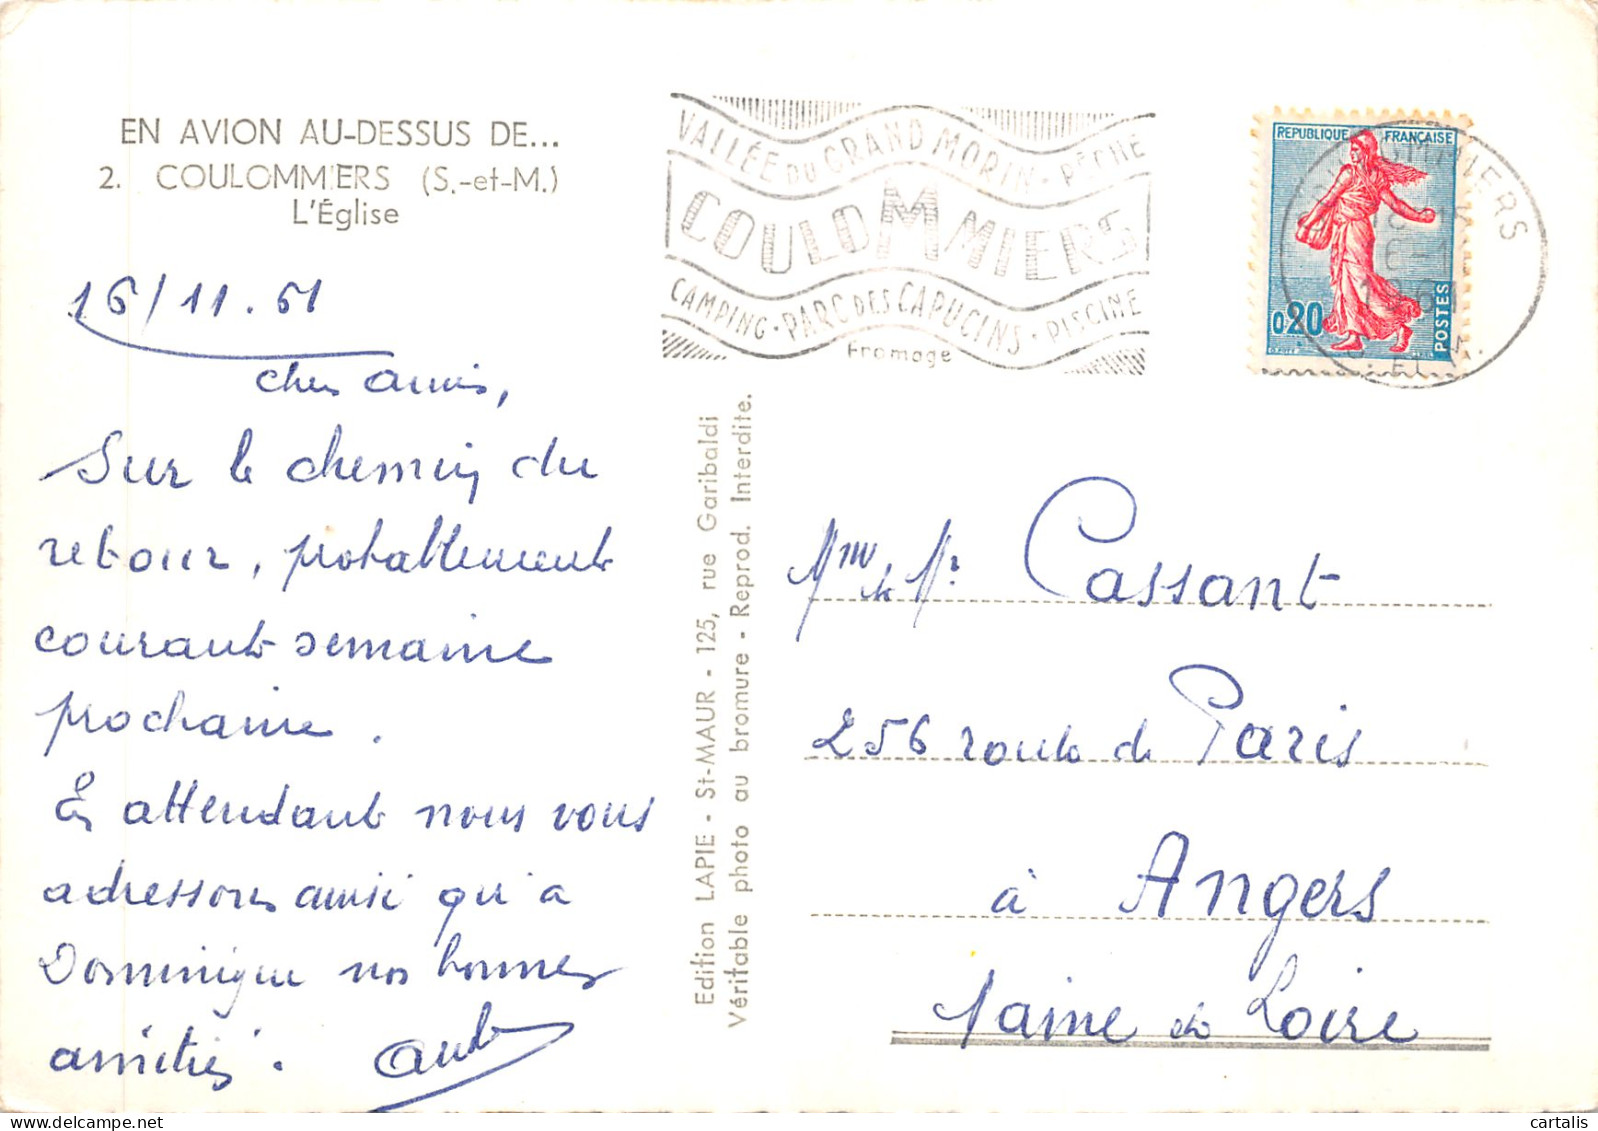 EN AVION AU-DESSUS DE...
2. COULOMMIERS (S.-et-M.)
L'Église
16/11.61
chers amis,
Sur le chemin du
retour, probablement
courant semaine
prochaine.
En attendant nous vous
adressons ainsi qu'a
Dominique nos bonnes
amitiés.
VALLÉE DU GRAND MORIN - PÊCHE
COULOMMIERS
CAMPING - PARC DES CAPUCINS - PISCINE
Fromage
REPUBLIQUE FRANÇAISE
0,20
POSTES
COULOMMIERS
S. ET M.
Edition LAPIE - St-MAUR - 125, rue Garibaldi
Véritable photo au bromure - Reprod. Interdite.
Mme & Mr Cassant
256 route de Paris
à Angers
Maine et Loire
cartalis
Delcampe.net